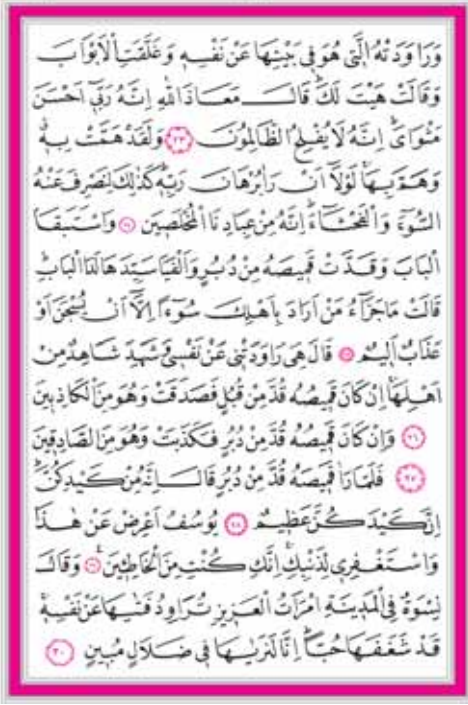 وَرَاوَدَتْهُ الَّتٖى هُوَ فٖى بَيْتِهَا عَنْ نَفْسِهٖ وَغَلَّقَتِ الْاَبْوَابَ
وَقَالَتْ هَيْتَ لَكَ قَالَ مَعَاذَ اللّٰهِ اِنَّهُ رَبّٖٓى اَحْسَنَ
مَثْوَاىَ اِنَّهُ لَا يُفْلِحُ الظَّالِمُونَ ﴿٢٣﴾ وَلَقَدْ هَمَّتْ بِهٖ
وَهَمَّ بِهَا لَوْلَٓا اَنْ رَاٰ بُرْهَانَ رَبِّهٖ كَذٰلِكَ لِنَصْرِفَ عَنْهُ
السُّٓوءَ وَالْفَحْشَٓاءَ اِنَّهُ مِنْ عِبَادِنَا الْمُخْلَصٖينَ ﴿٢٤﴾ وَاسْتَبَقَا
الْبَابَ وَقَدَّتْ قَمٖيصَهُ مِنْ دُبُرٍ وَاَلْفَيَا سَيِّدَهَا لَدَا الْبَابِ
قَالَتْ مَا جَزَٓاءُ مَنْ اَرَادَ بِاَهْلِكَ سُٓوءًا اِلَّٓا اَنْ يُسْجَنَ اَوْ
عَذَابٌ اَلٖيمٌ ﴿٢٥﴾ قَالَ هِىَ رَاوَدَتْنٖى عَنْ نَفْسٖى وَشَهِدَ شَاهِدٌ مِنْ
اَهْلِهَا اِنْ كَانَ قَمٖيصُهُ قُدَّ مِنْ قُبُلٍ فَصَدَقَتْ وَهُوَ مِنَ الْكَاذِبٖينَ
﴿٢٦﴾ وَاِنْ كَانَ قَمٖيصُهُ قُدَّ مِنْ دُبُرٍ فَكَذَبَتْ وَهُوَ مِنَ الصَّادِقٖينَ
﴿٢٧﴾ فَلَمَّا رَاٰ قَمٖيصَهُ قُدَّ مِنْ دُبُرٍ قَالَ اِنَّهُ مِنْ كَيْدِكُنَّ
اِنَّ كَيْدَكُنَّ عَظٖيمٌ ﴿٢٨﴾ يُوسُفُ اَعْرِضْ عَنْ هٰذَا
وَاسْتَغْفِرٖى لِذَنْبِكِ اِنَّكِ كُنْتِ مِنَ الْخَاطِـٖٔينَ ﴿٢٩﴾ وَقَالَ
نِسْوَةٌ فِى الْمَدٖينَةِ امْرَاَتُ الْعَزٖيزِ تُرَاوِدُ فَتٰیهَا عَنْ نَفْسِهٖ
قَدْ شَغَفَهَا حُبًّا اِنَّا لَنَرٰیهَا فٖى ضَلَالٍ مُبٖينٍ ﴿٣٠﴾